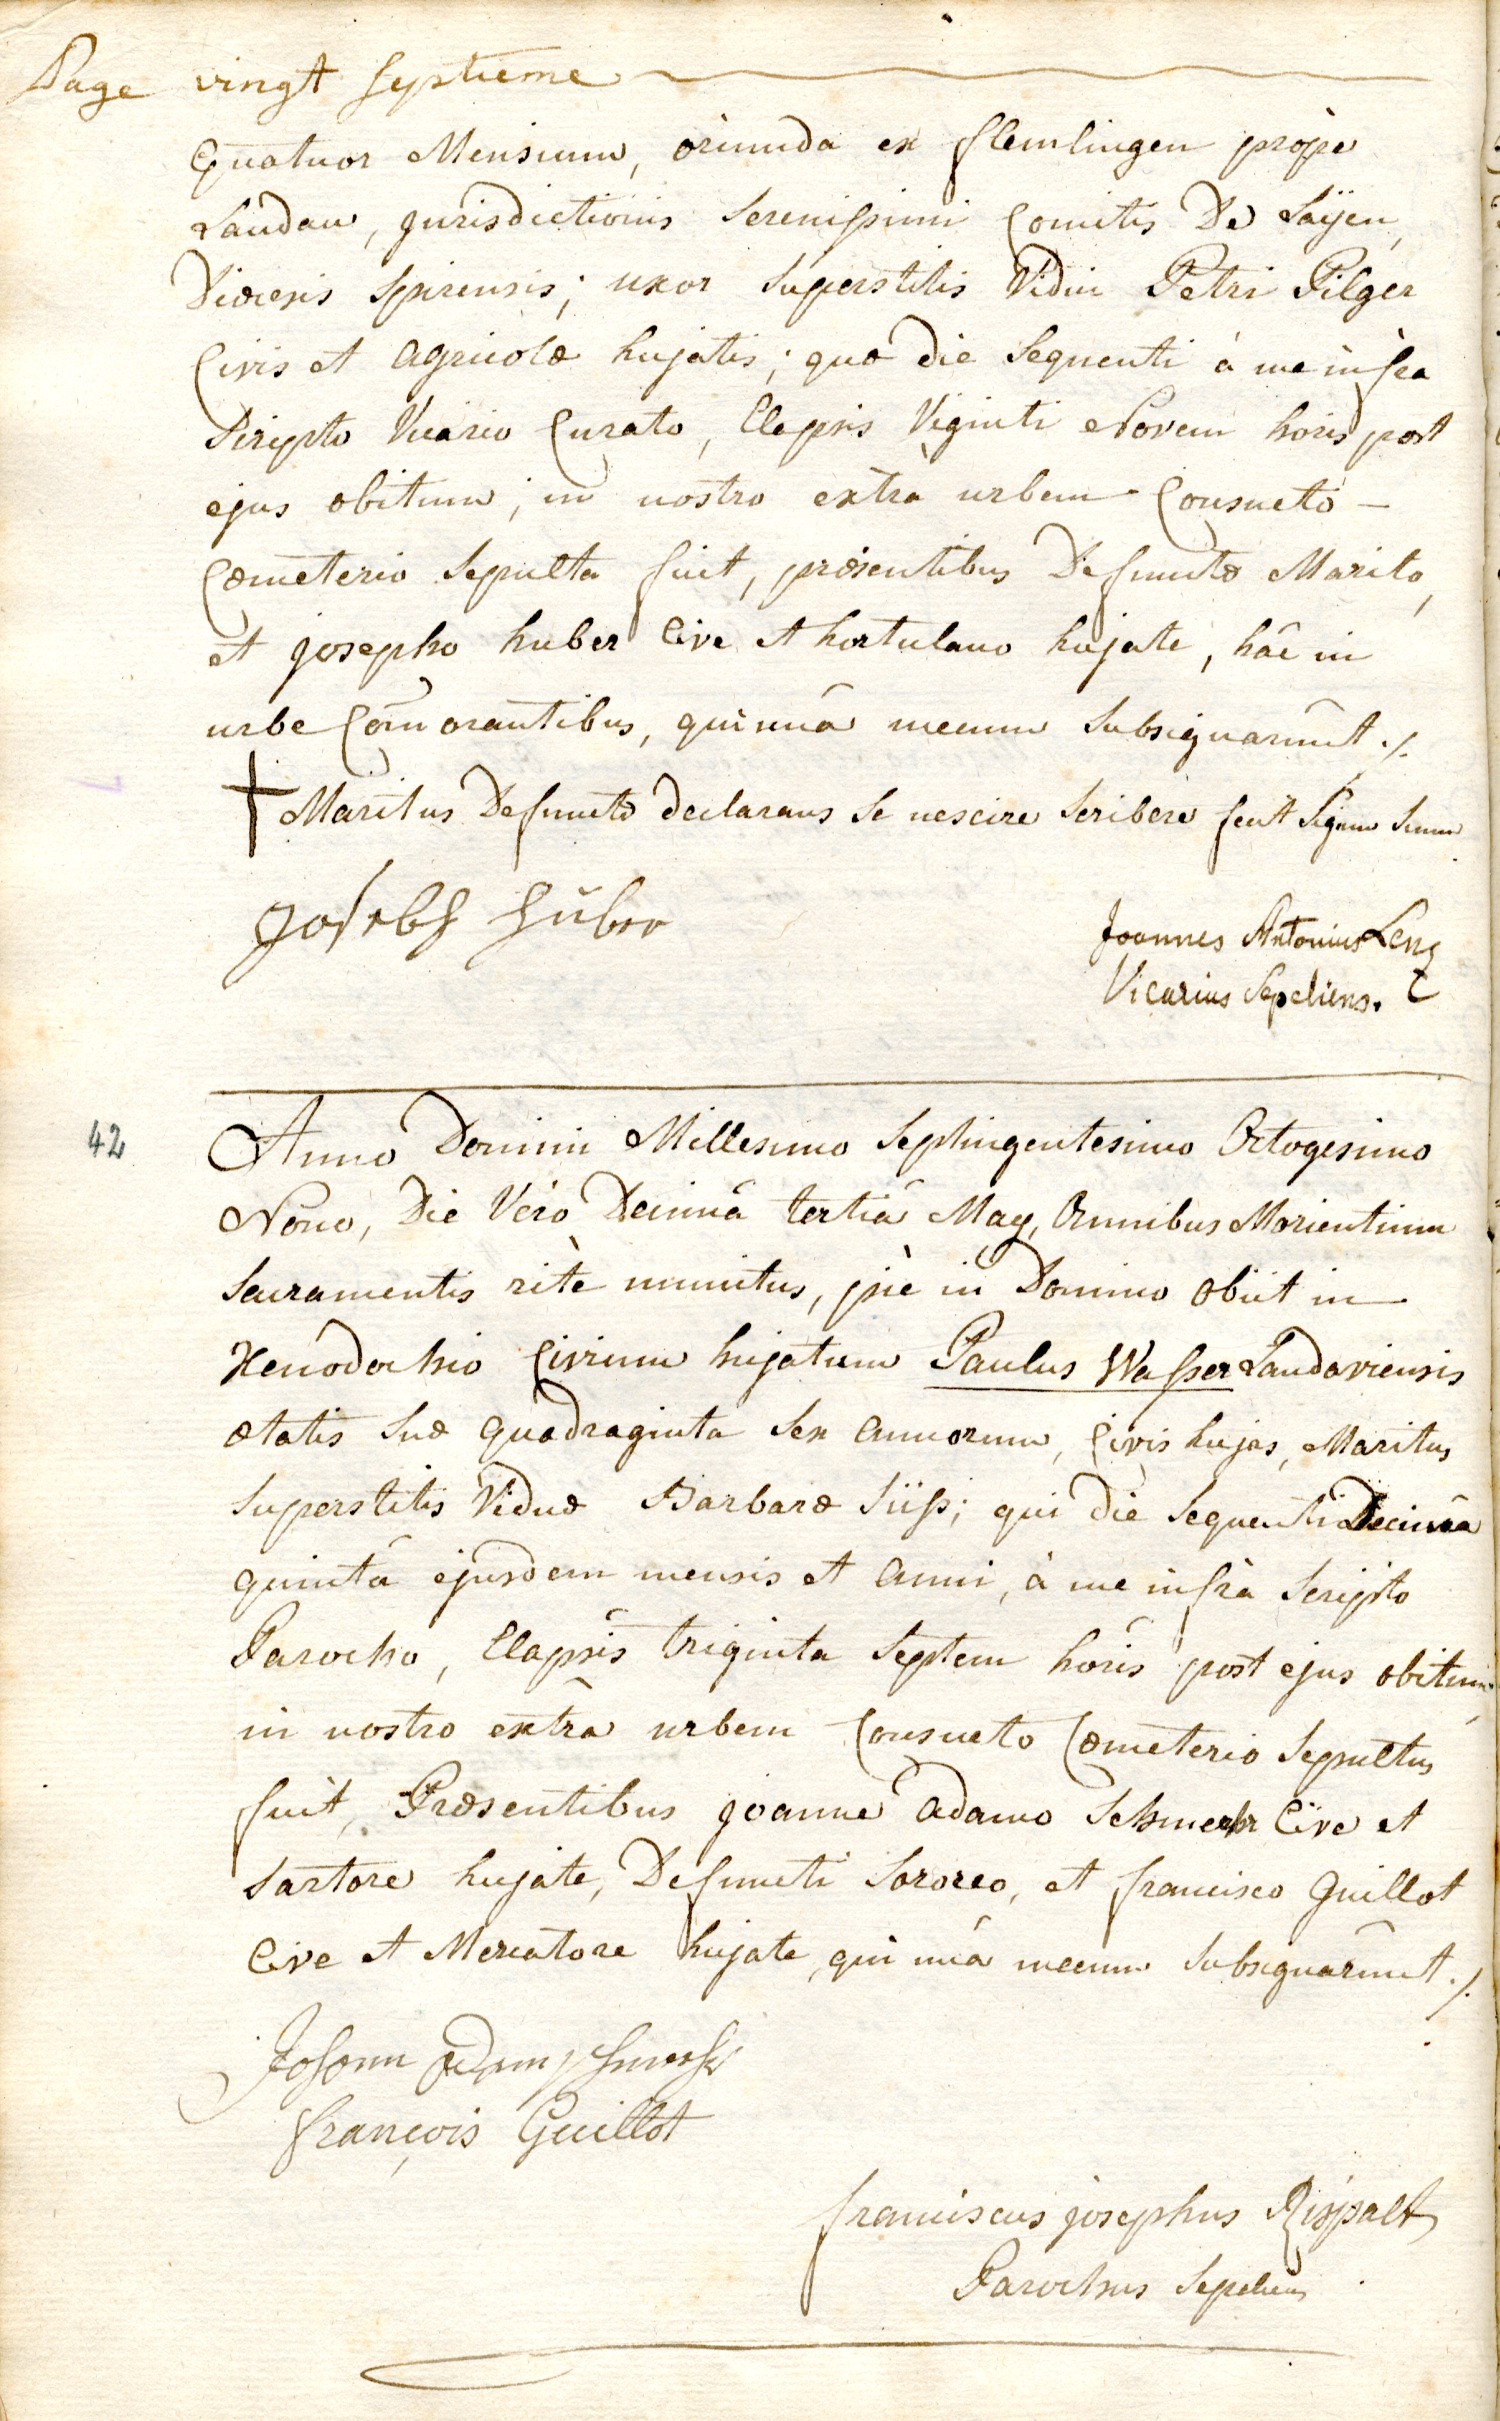 Page vingt septieme
Quatuor Mensium, oriunda ex flemlingen prope
Landau, jurisdictionis Serenissimi Comitis De Läyen,
Dioecesis Spirensis; uxor Superstitis Vidui Petri Pilger
Civis et agricolæ hujatis; quæ die Sequenti à me infra
Scripto Vicario Curato, Elapsis Viginti Novem horis post
ejus obitum; in nostro extra urbem Consueto –
Cœmeterio Sepulta fuit, præsentibus Defunctæ Marito,
et josepho huber Cive et hortulano hujate, hâc in
urbe Com̄orantibus, qui unâ mecum Subsignarunt ./.
† Maritus Defunctæ declarans Se nescire Scribere fecit Signum Suum
Joseph Huber
Joannes Antonius Lenz
Vicarius Sepeliens.
42
Anno Domini Millesimo Septingentesimo Octogesimo
Nono, Die Verò Decimâ tertiâ Maÿ, Omnibus Morientium
Sacramentis ritè munitus, piè in Domino Obiit in
Xenodochio Civium hujatum Paulus Wasser Landaviensis
ætatis Suæ quadraginta Sex annorum, Civis hujas, Maritus
Superstitis Viduæ Barbaræ Süss; qui die Sequenti Decimâ
quintâ ejusdem mensis et anni, à me infrà Scripto
Parocho, Elapsis triginta Septem horis post ejus obitum,
in nostro extra urbem Consueto Cœmeterio Sepultus
fuit, Præsentibus joanne adamo Schmerbr Cive et
Sartore hujate, Defuncti Sororeo, et francisco Guillot
Cive et Mercatore hujate, qui unâ mecum Subsignarunt ./.
Johann Adam
françois Guillot
franciscus josephus Rispalt
Parochus Sepeliens